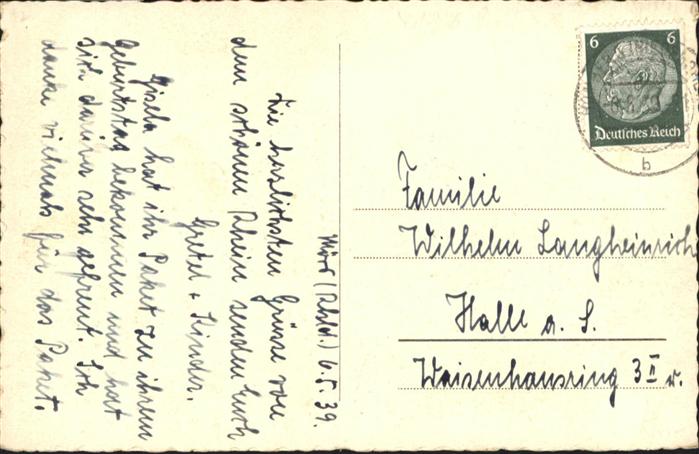 Mörs (Rhld.) 6.5.39.
Die herzlichsten Grüße von
dem schönen Rhein senden Euch
Gretel + Kinder.
Gisela hat ihr Paket zu ihrem
Geburtstag bekommen und hat
sich darüber sehr gefreut. Ich
danke vielmals für das Paket.
6 6
Deutsches Reich
b
Familie
Wilhelm Langheinrich
Halle a. S.
Waisenhausring 3 II r.